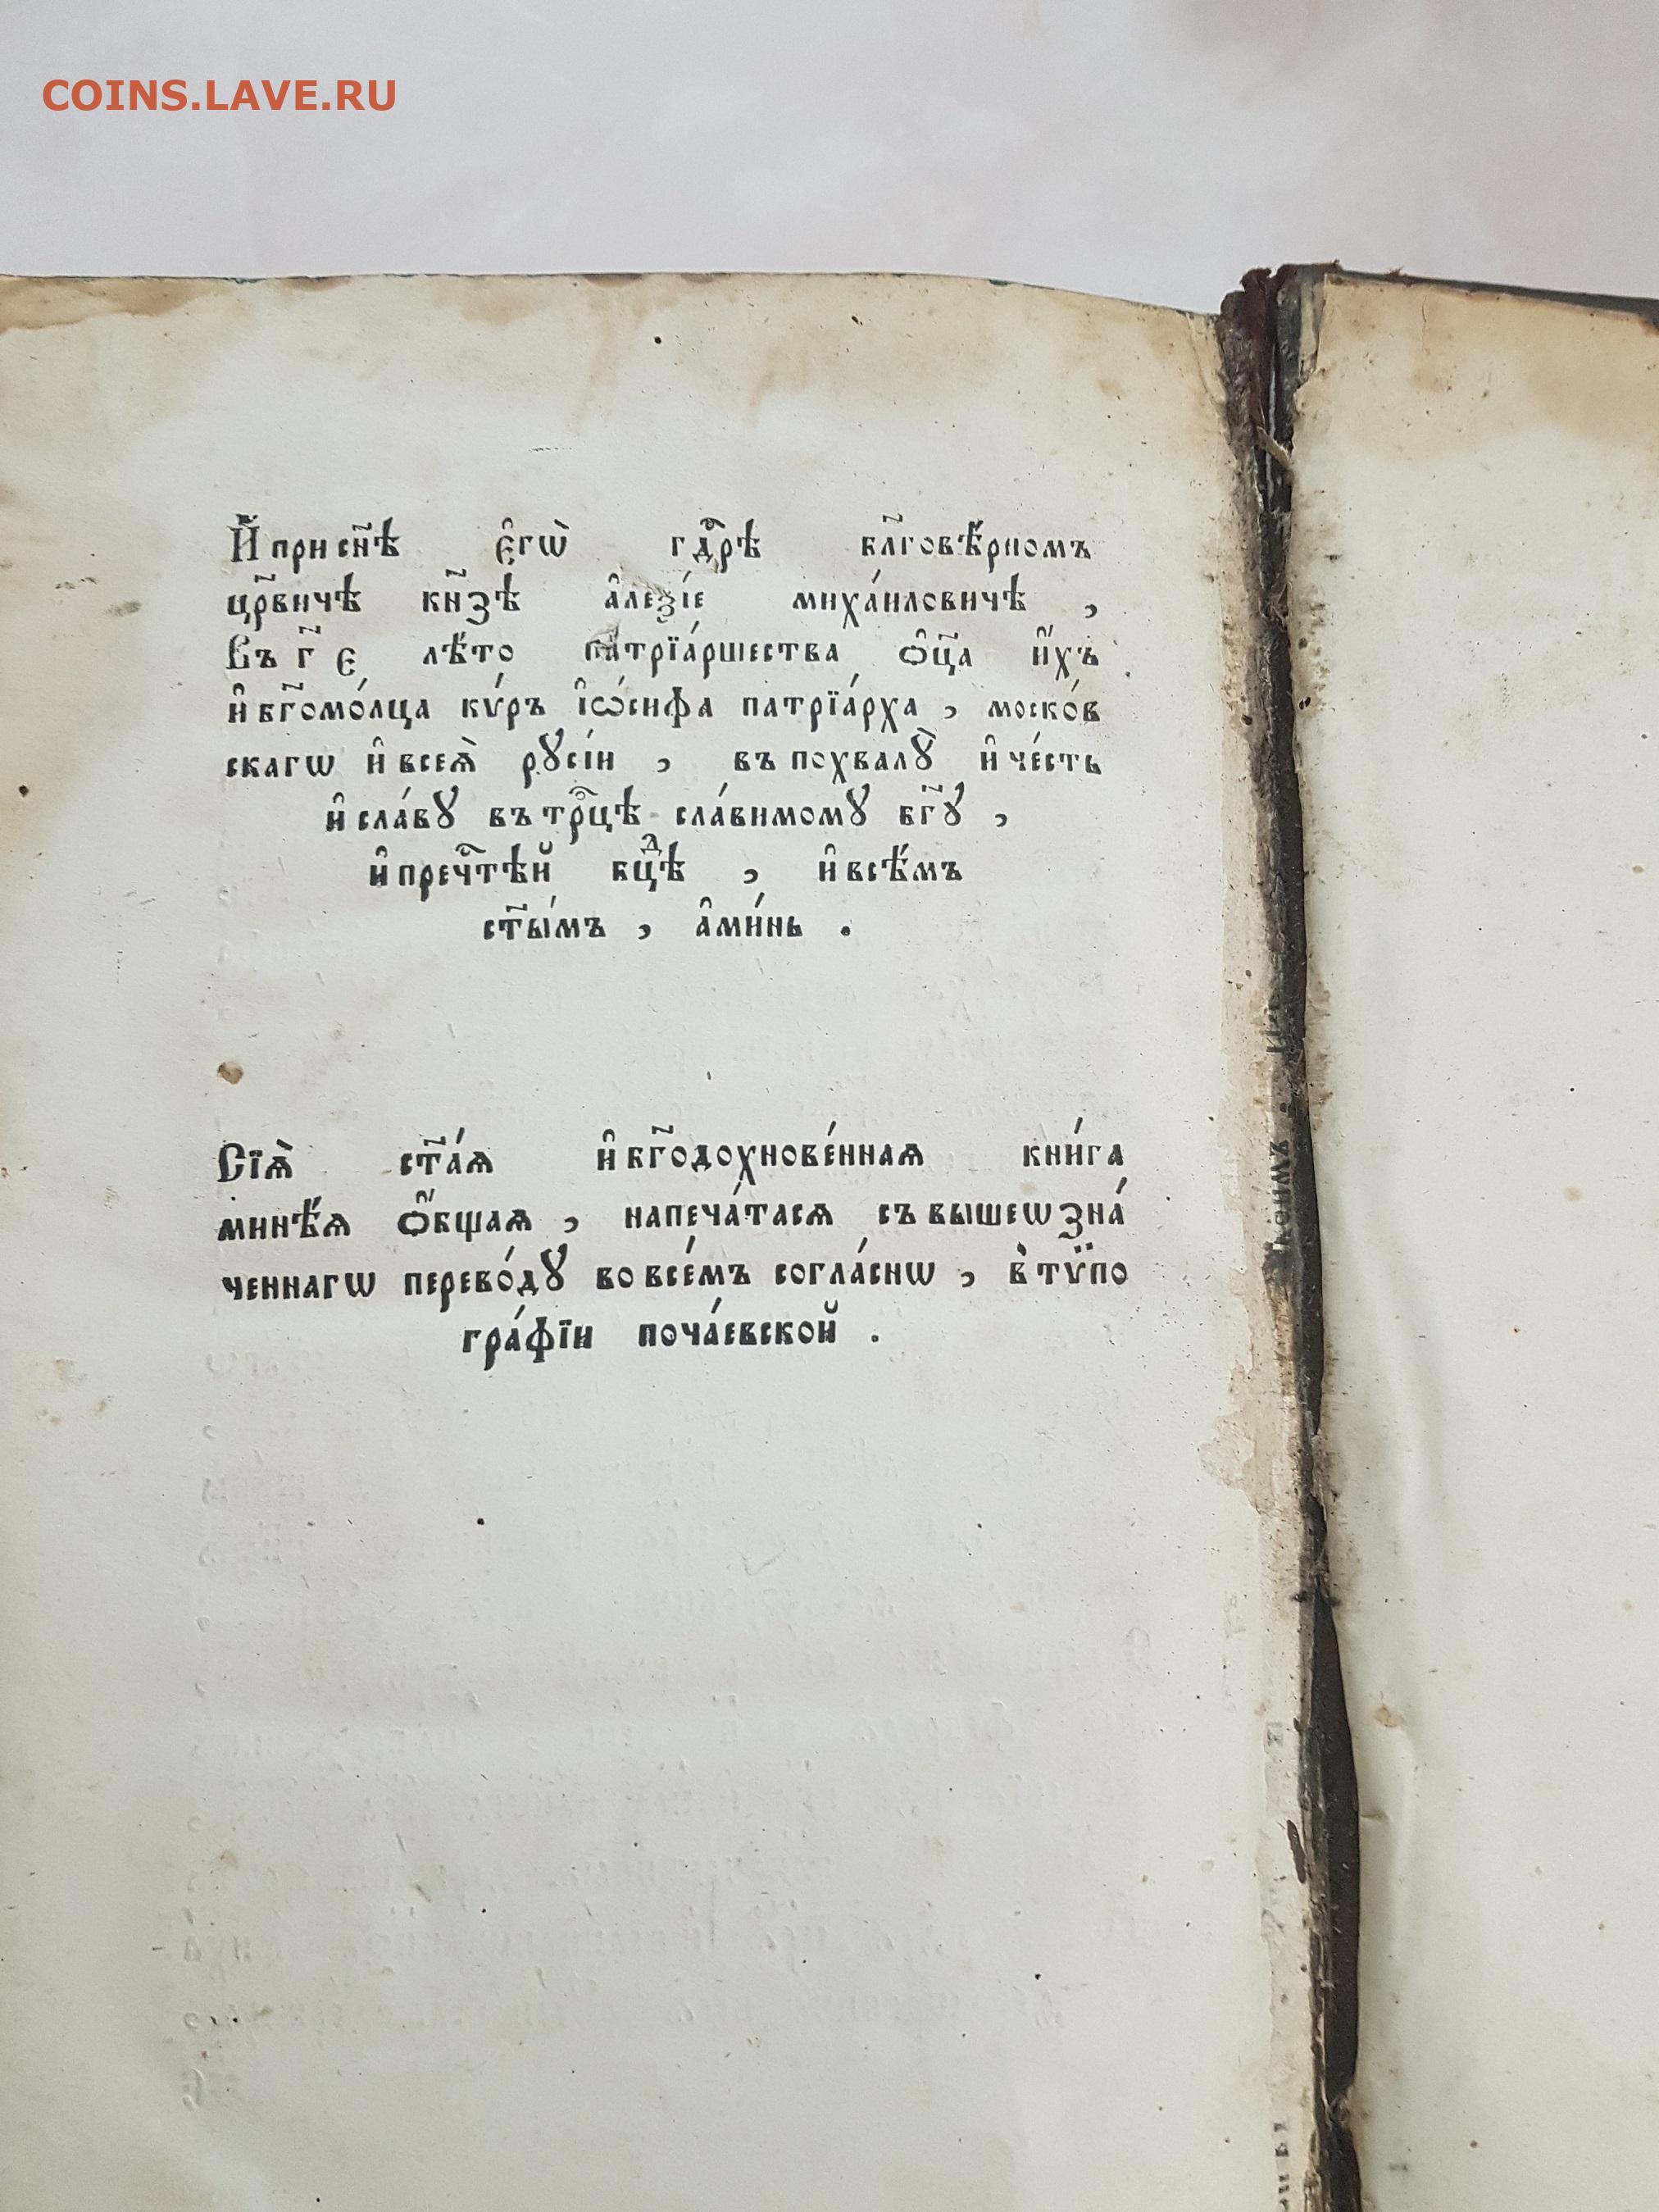 COINS.LAVE.RU
И҆̀ при сн҃ѣ є҆гѡ̀ гдⷭ҇рѣ бл҃говѣ́рномъ
цр҃вичѣ кн҃зѣ а҆леѯі́е миха́иловичѣ ,
Въ г҃ є лѣ́то патрїа́ршества ѻ҆ц҃а и҆́хъ
и҆ бг҃омо́лца кѵ́ръ і҆ѡ́сифа патрїа́рха , моско́в
скагѡ и҆ всеѧ̀ рꙋсі́и , въ похвалꙋ̀ и҆ че́сть
и҆ сла́вꙋ въ трⷪ҇цѣ сла́вимомꙋ бг҃ꙋ ,
и҆ пречⷭ҇тѣй бцⷣѣ , и҆ всѣ́мъ
ст҃ы́мъ , а҆ми́нь .
Сїѧ̀ ст҃а́ѧ и҆ бг҃одохнове́ннаѧ кни́га
минѣ́ѧ ѻ҆́бщаѧ , напеча́тасѧ съ вышеѡзна́
ченнагѡ перево́дꙋ во все́мъ согла́снѡ , в̾ тѷпо
гра́фїи поча́евской .